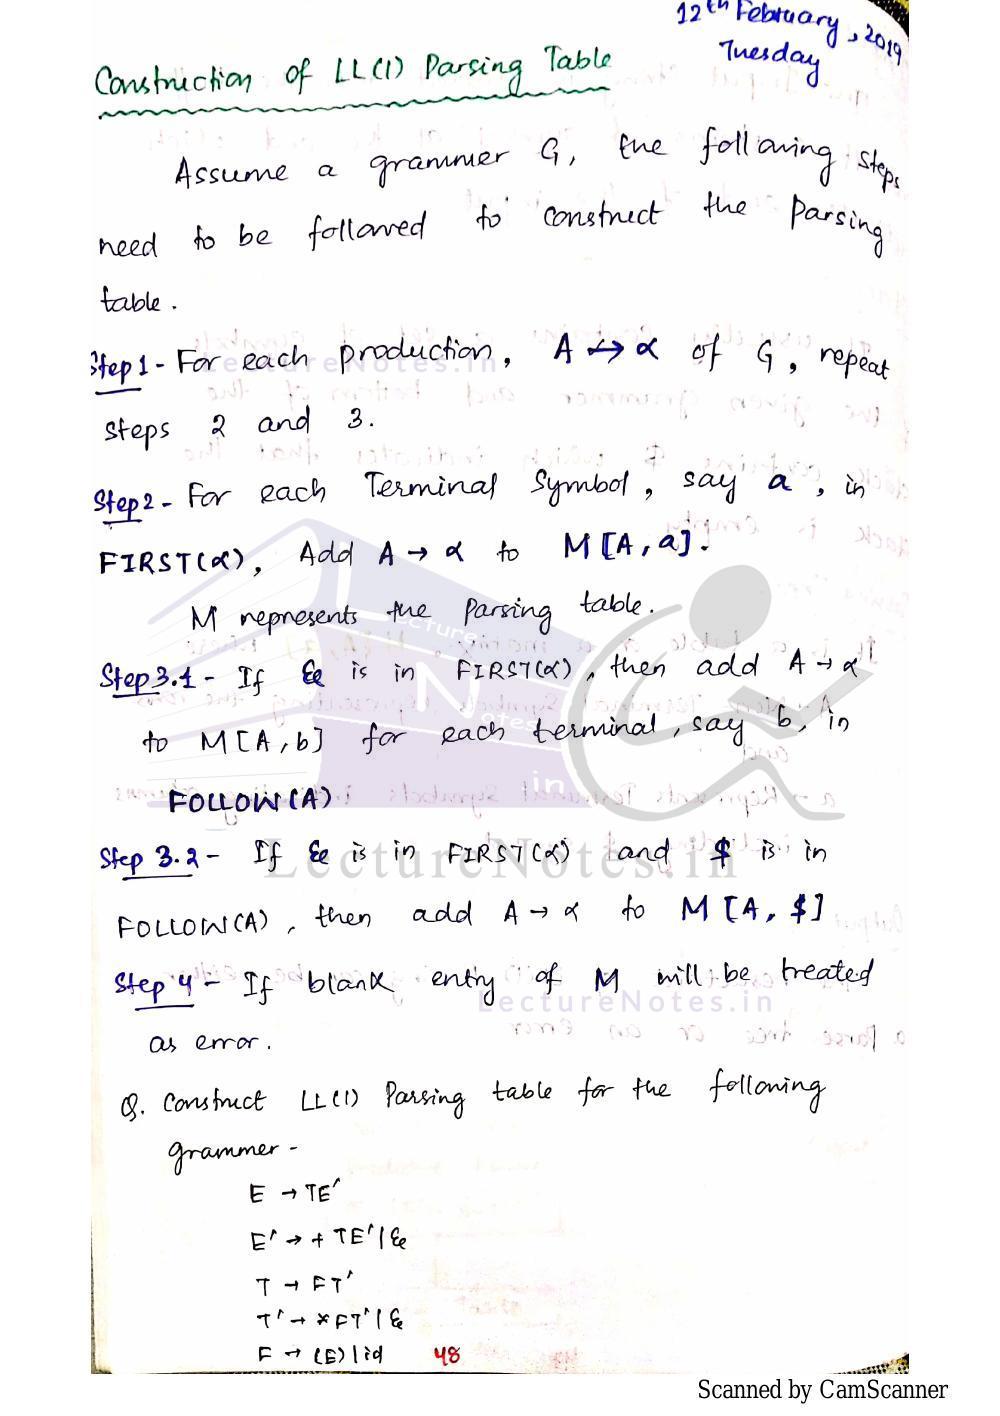 12th February, 2019
Tuesday
Construction of LL(1) Parsing Table
Assume a grammer G, the following steps
need to be followed to construct the Parsing
table.
Step 1 - For each production, A → α of G, repeat
steps 2 and 3.
Step 2 - For each Terminal Symbol, say a, in
FIRST(α), Add A → α to M[A, a].
M represents the Parsing table.
Step 3.1 - If ε is in FIRST(α), then add A → α
to M[A, b] for each terminal, say b, in
FOLLOW(A)
Step 3.2 - If ε is in FIRST(α) and $ is in
FOLLOW(A), then add A → α to M[A, $]
Step 4 - If blank entry of M will be treated
as error.
Q. Construct LL(1) Parsing table for the following
grammer -
E → TE'
E' → + TE' | ε
T → FT'
T' → *FT' | ε
F → (E) | id
48
LectureNotes.in
Lecture
Notes
in
LectureNotes.in
LectureNotes.in
Scanned by CamScanner